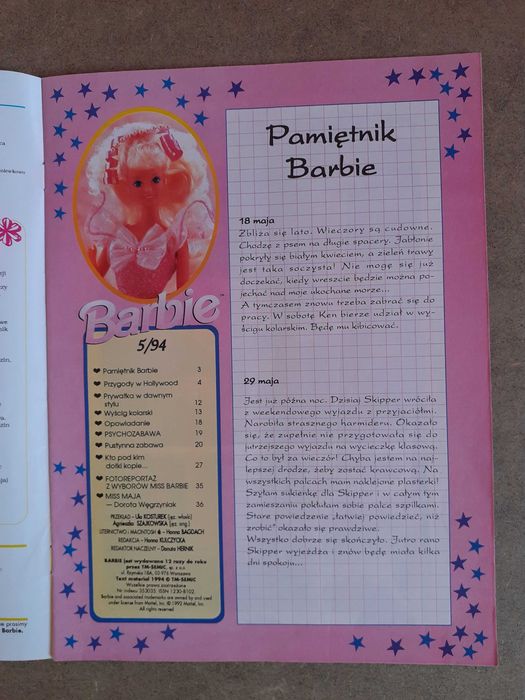 Barbie
5/94
Pamiętnik Barbie 3
Przygody w Hollywood 4
Prywatka w dawnym
stylu 12
Wyścig kolarski 13
Opowiadanie 18
PSYCHOZABAWA 19
Pustynna zabawa 20
Kto pod kim
dołki kopie... 27
FOTOREPORTAŻ
Z WYBORÓW MISS BARBIE 35
MISS MAJA
— Dorota Węgrzyniak 36
PRZEKŁAD – Ula KOSTUREK (jęz. włoski)
Agnieszka SZAJKOWSKA (jęz. ang.)
LITERNICTWO i MACINTOSH – Hanna BAGDACH
REDAKCJA – Hanna KULCZYCKA
REDAKTOR NACZELNY – Danuta HERNIK
BARBIE jest wydawane 12 razy do roku
przez TM-SEMIC, sp. z o.o.
ul. Rzymska 18A, 03-976 Warszawa
Text material 1994 © TM-SEMIC
Wszelkie prawa zastrzeżone
Nr indeksu 353035. ISSN 1230-8102
Barbie and associated trademarks are owned by and used
under license from Mattel, Inc. © 1992 Mattel, Inc.
All rights reserved
Pamiętnik
Barbie
18 maja
Zbliża się lato. Wieczory są cudowne.
Chodzę z psem na długie spacery. Jabłonie
pokryły się białym kwieciem, a zieleń trawy
jest taka soczysta! Nie mogę się już
doczekać, kiedy wreszcie będzie można po-
jechać nad moje ukochane morze...
A tymczasem znowu trzeba zabrać się do
pracy. W sobotę Ken bierze udział w wy-
ścigu kolarskim. Będę mu kibicować.
29 maja
Jest już późna noc. Dzisiaj Skipper wróciła
z weekendowego wyjazdu z przyjaciółmi.
Narobiła strasznego harmideru. Okazało
się, że zupełnie nie przygotowała się do
jutrzejszego wyjazdu na wycieczkę klasową.
Co to był za wieczór! Chyba jestem na naj-
lepszej drodze, żeby zostać krawcową. Na
wszystkich palcach mam naklejone plasterki!
Szyłam sukienkę dla Skipper i w całym tym
zamieszaniu pokłułam sobie palce szpilkami.
Stare powiedzenie „łatwiej powiedzieć, niż
zrobić" okazało się prawdziwe.
Wszystko dobrze się skończyło. Jutro rano
Skipper wyjeżdża i znów będę miała kilka
dni spokoju...
Barbie.